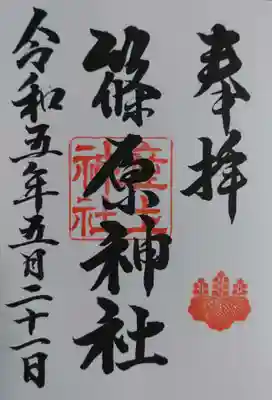 奉拝
篠原神社
産土神社
令和五年五月二十一日